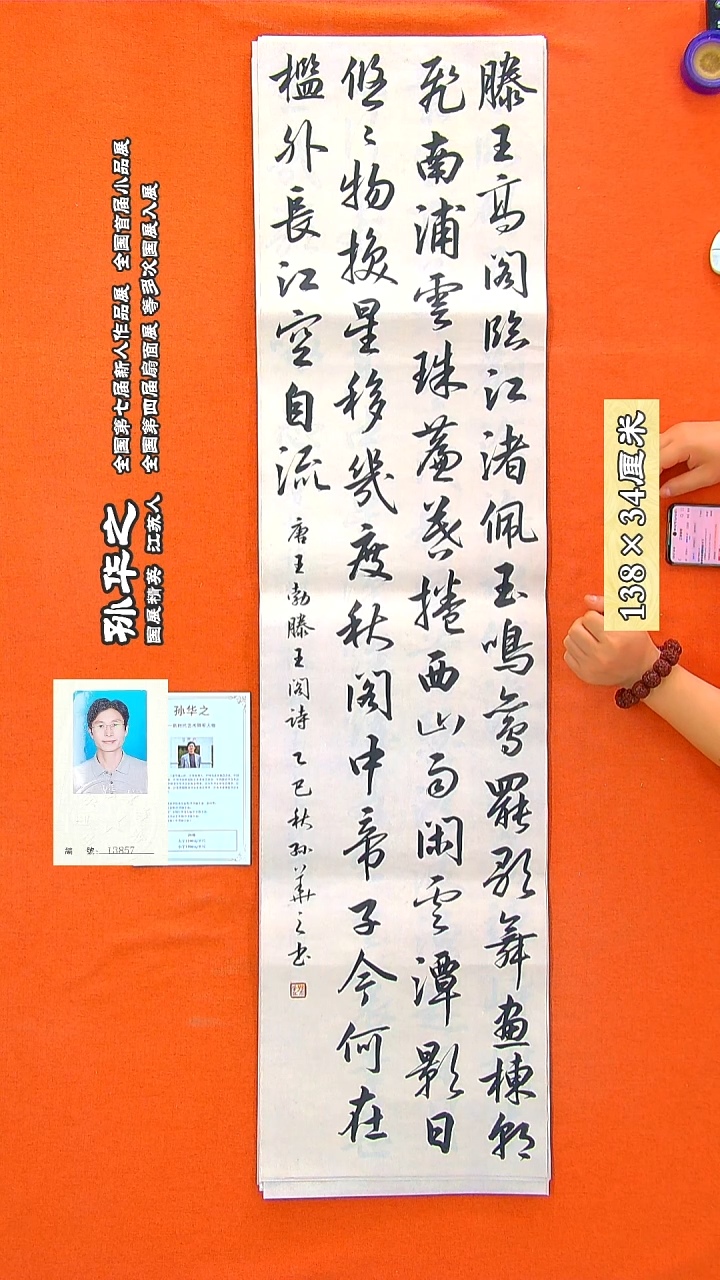 滕王高阁臨江渚佩玉鳴鸞罷歌舞畫棟朝
飛南浦雲珠簾暮捲西山雨閑雲潭影日
悠〻物换星移幾度秋阁中帝子今何在
檻外長江空自流 唐王勃滕王阁诗 乙巳秋孙華之书
138×34厘米
孙华之
国展精英 江苏人
全国第七届新人作品展 全国首届小品展
全国第四届扇面展 等多次国展入展
孙华之
编 號: 13857